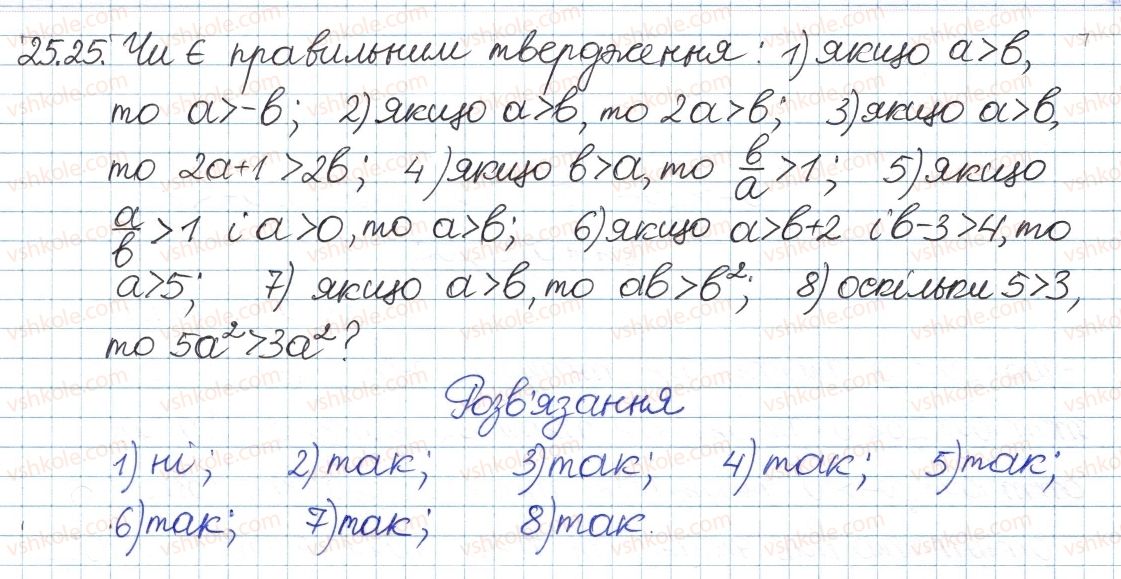 25.25. Чи є правильним твердження: 1) якщо a>b,
то a>-b; 2) якщо a>b, то 2a>b; 3) якщо a>b,
то 2a+1>2b; 4) якщо b>a, то b/a>1; 5) якщо
a/b>1 і a>0, то a>b; 6) якщо a>b+2 і b-3>4, то
a>5; 7) якщо a>b, то ab>b²; 8) оскільки 5>3,
то 5a²>3a²?
Розв'язання
1) ні; 2) так; 3) так; 4) так; 5) так;
6) так; 7) так; 8) так.